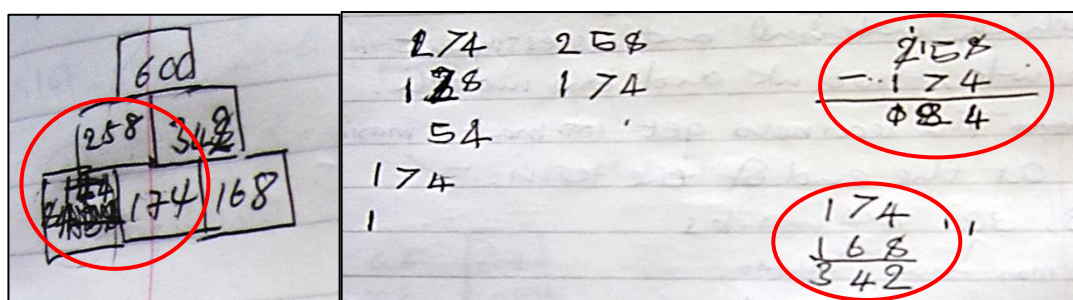 600
258 342
174 168
274 258
128 174
54
174
1
258
- 174
084
174
168
342